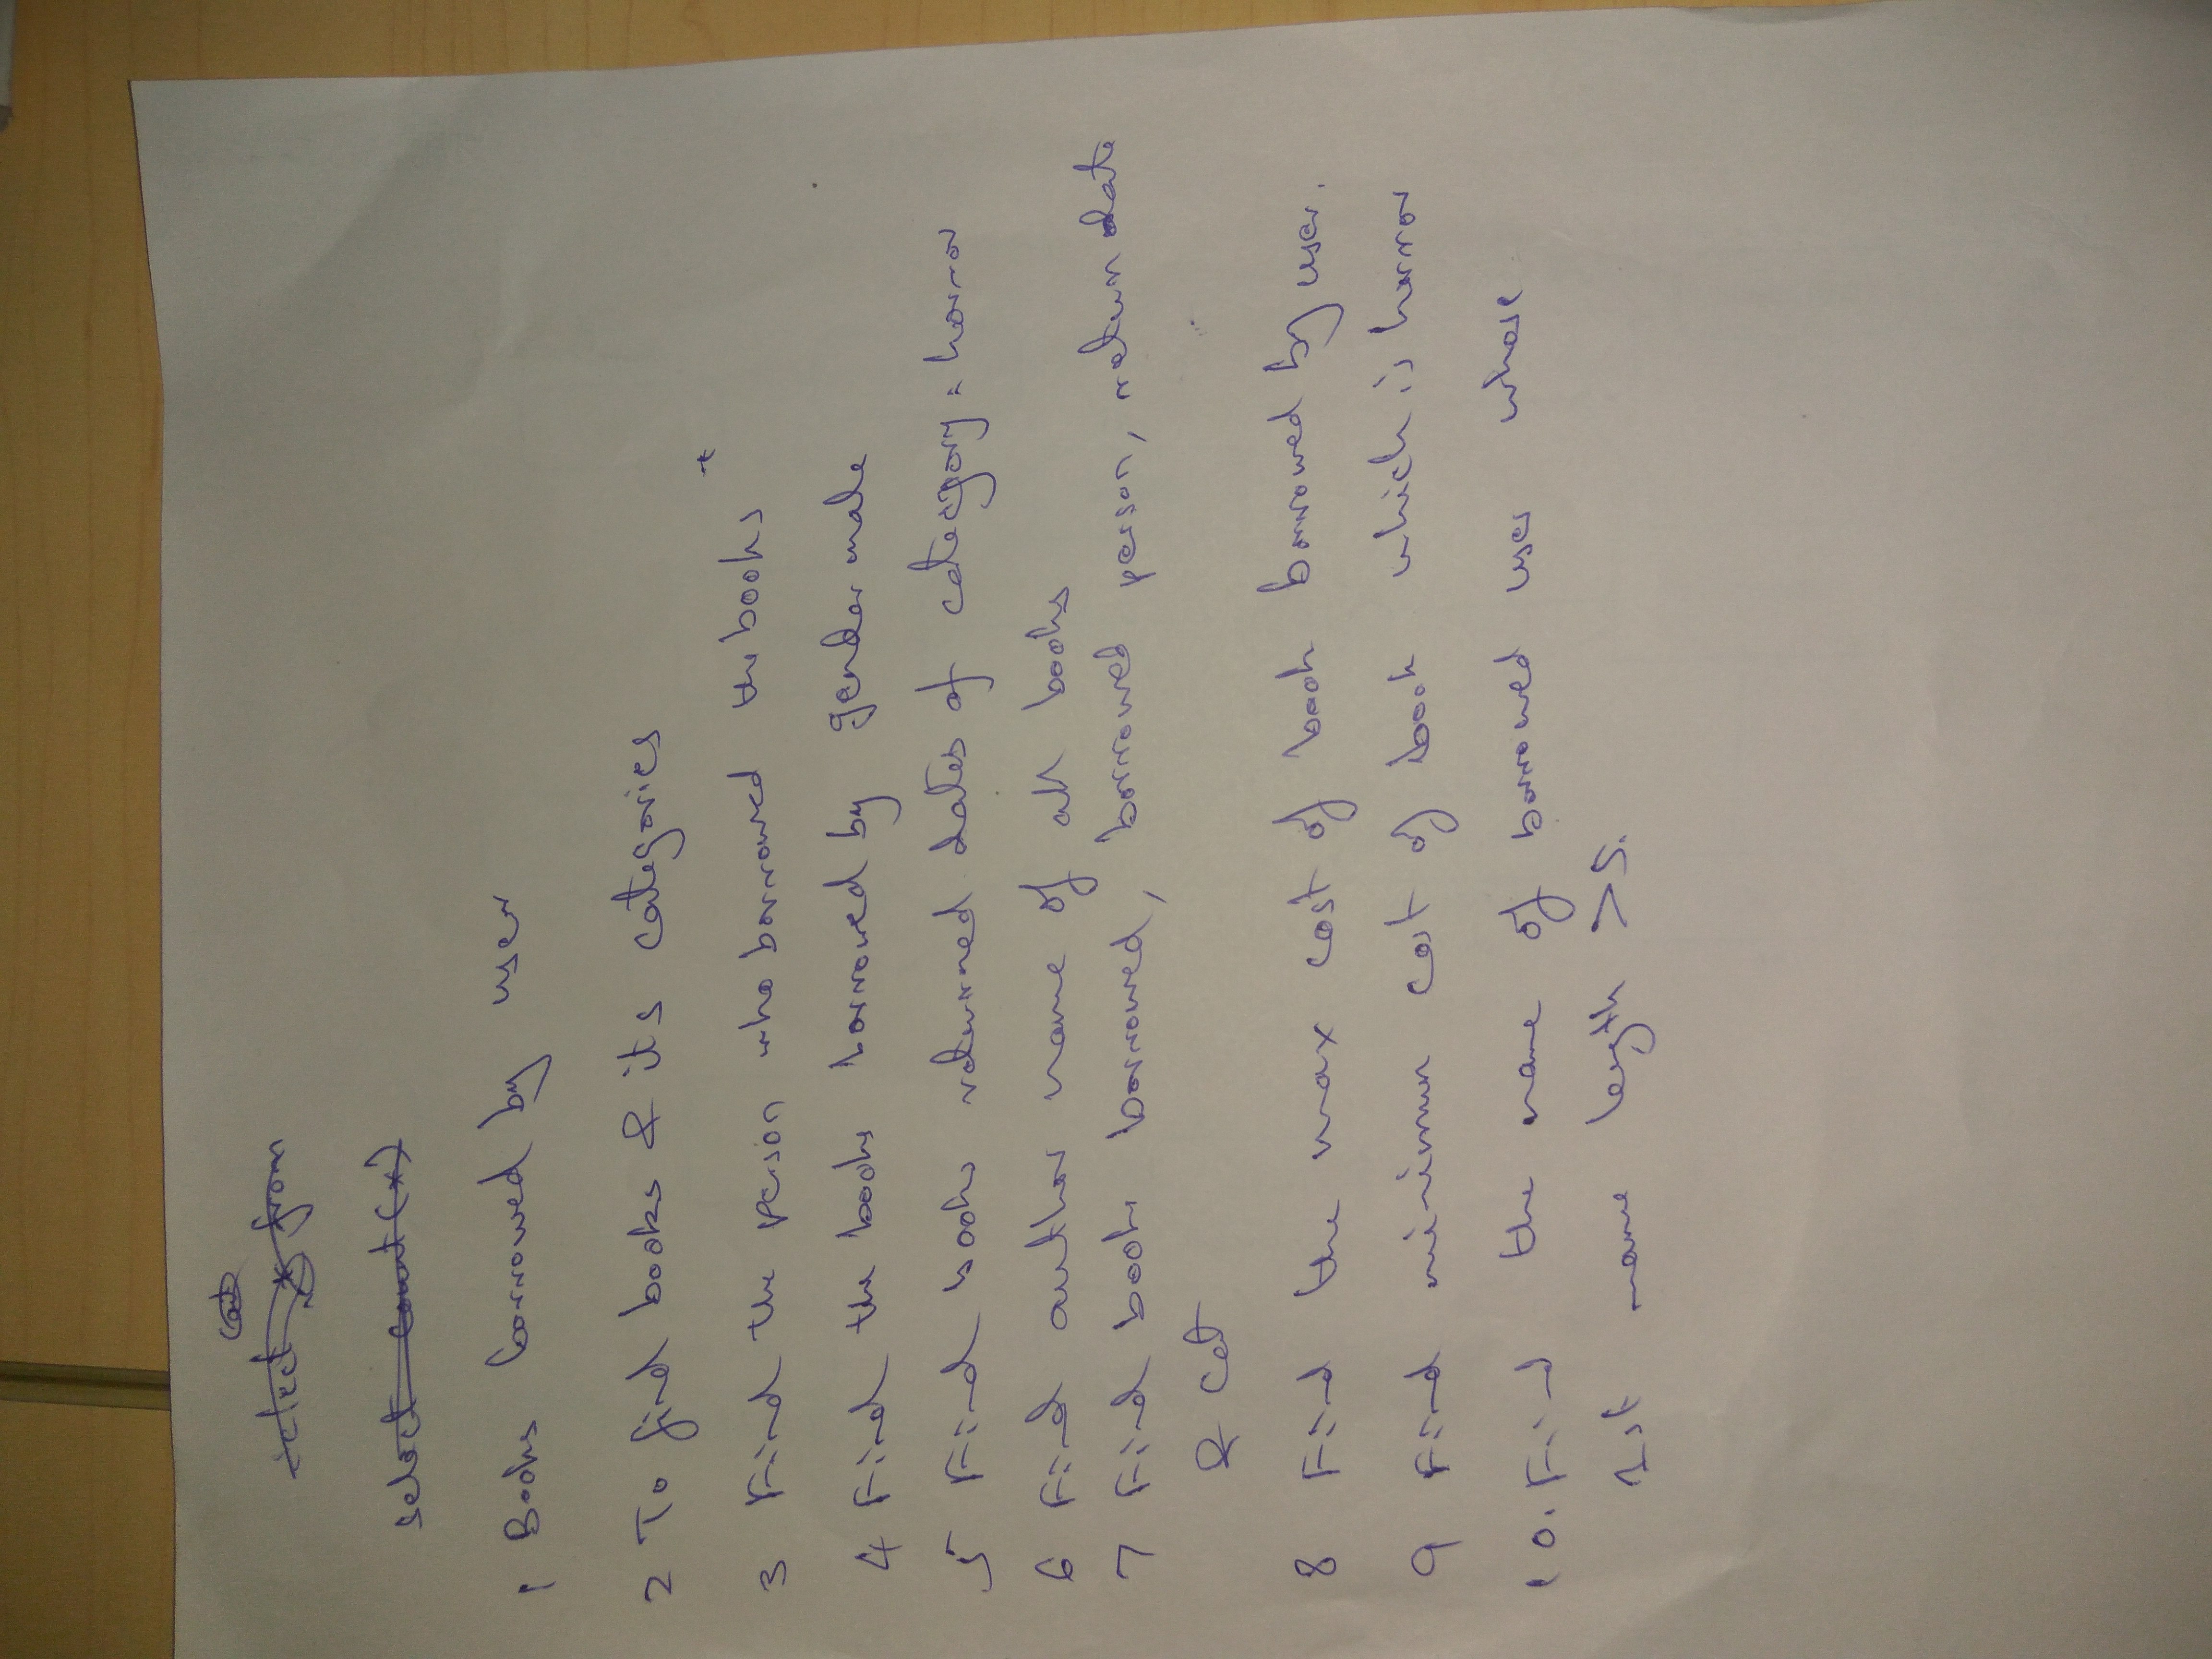 select * from
select count(*)
1 Books borrowed by user
2 To find books & its categories
3 Find the person who borrowed the books
4 Find the books borrowed by gender male
5 Find book returned dates of category = horror
6 Find author name of all books
7 Find book borrowed, borrowed person, return date
& cat
8 Find the max cost of book borrowed by user.
9 Find minimum cost of book which is horror
10. Find the name of borrowed user whose
1st name length >5.